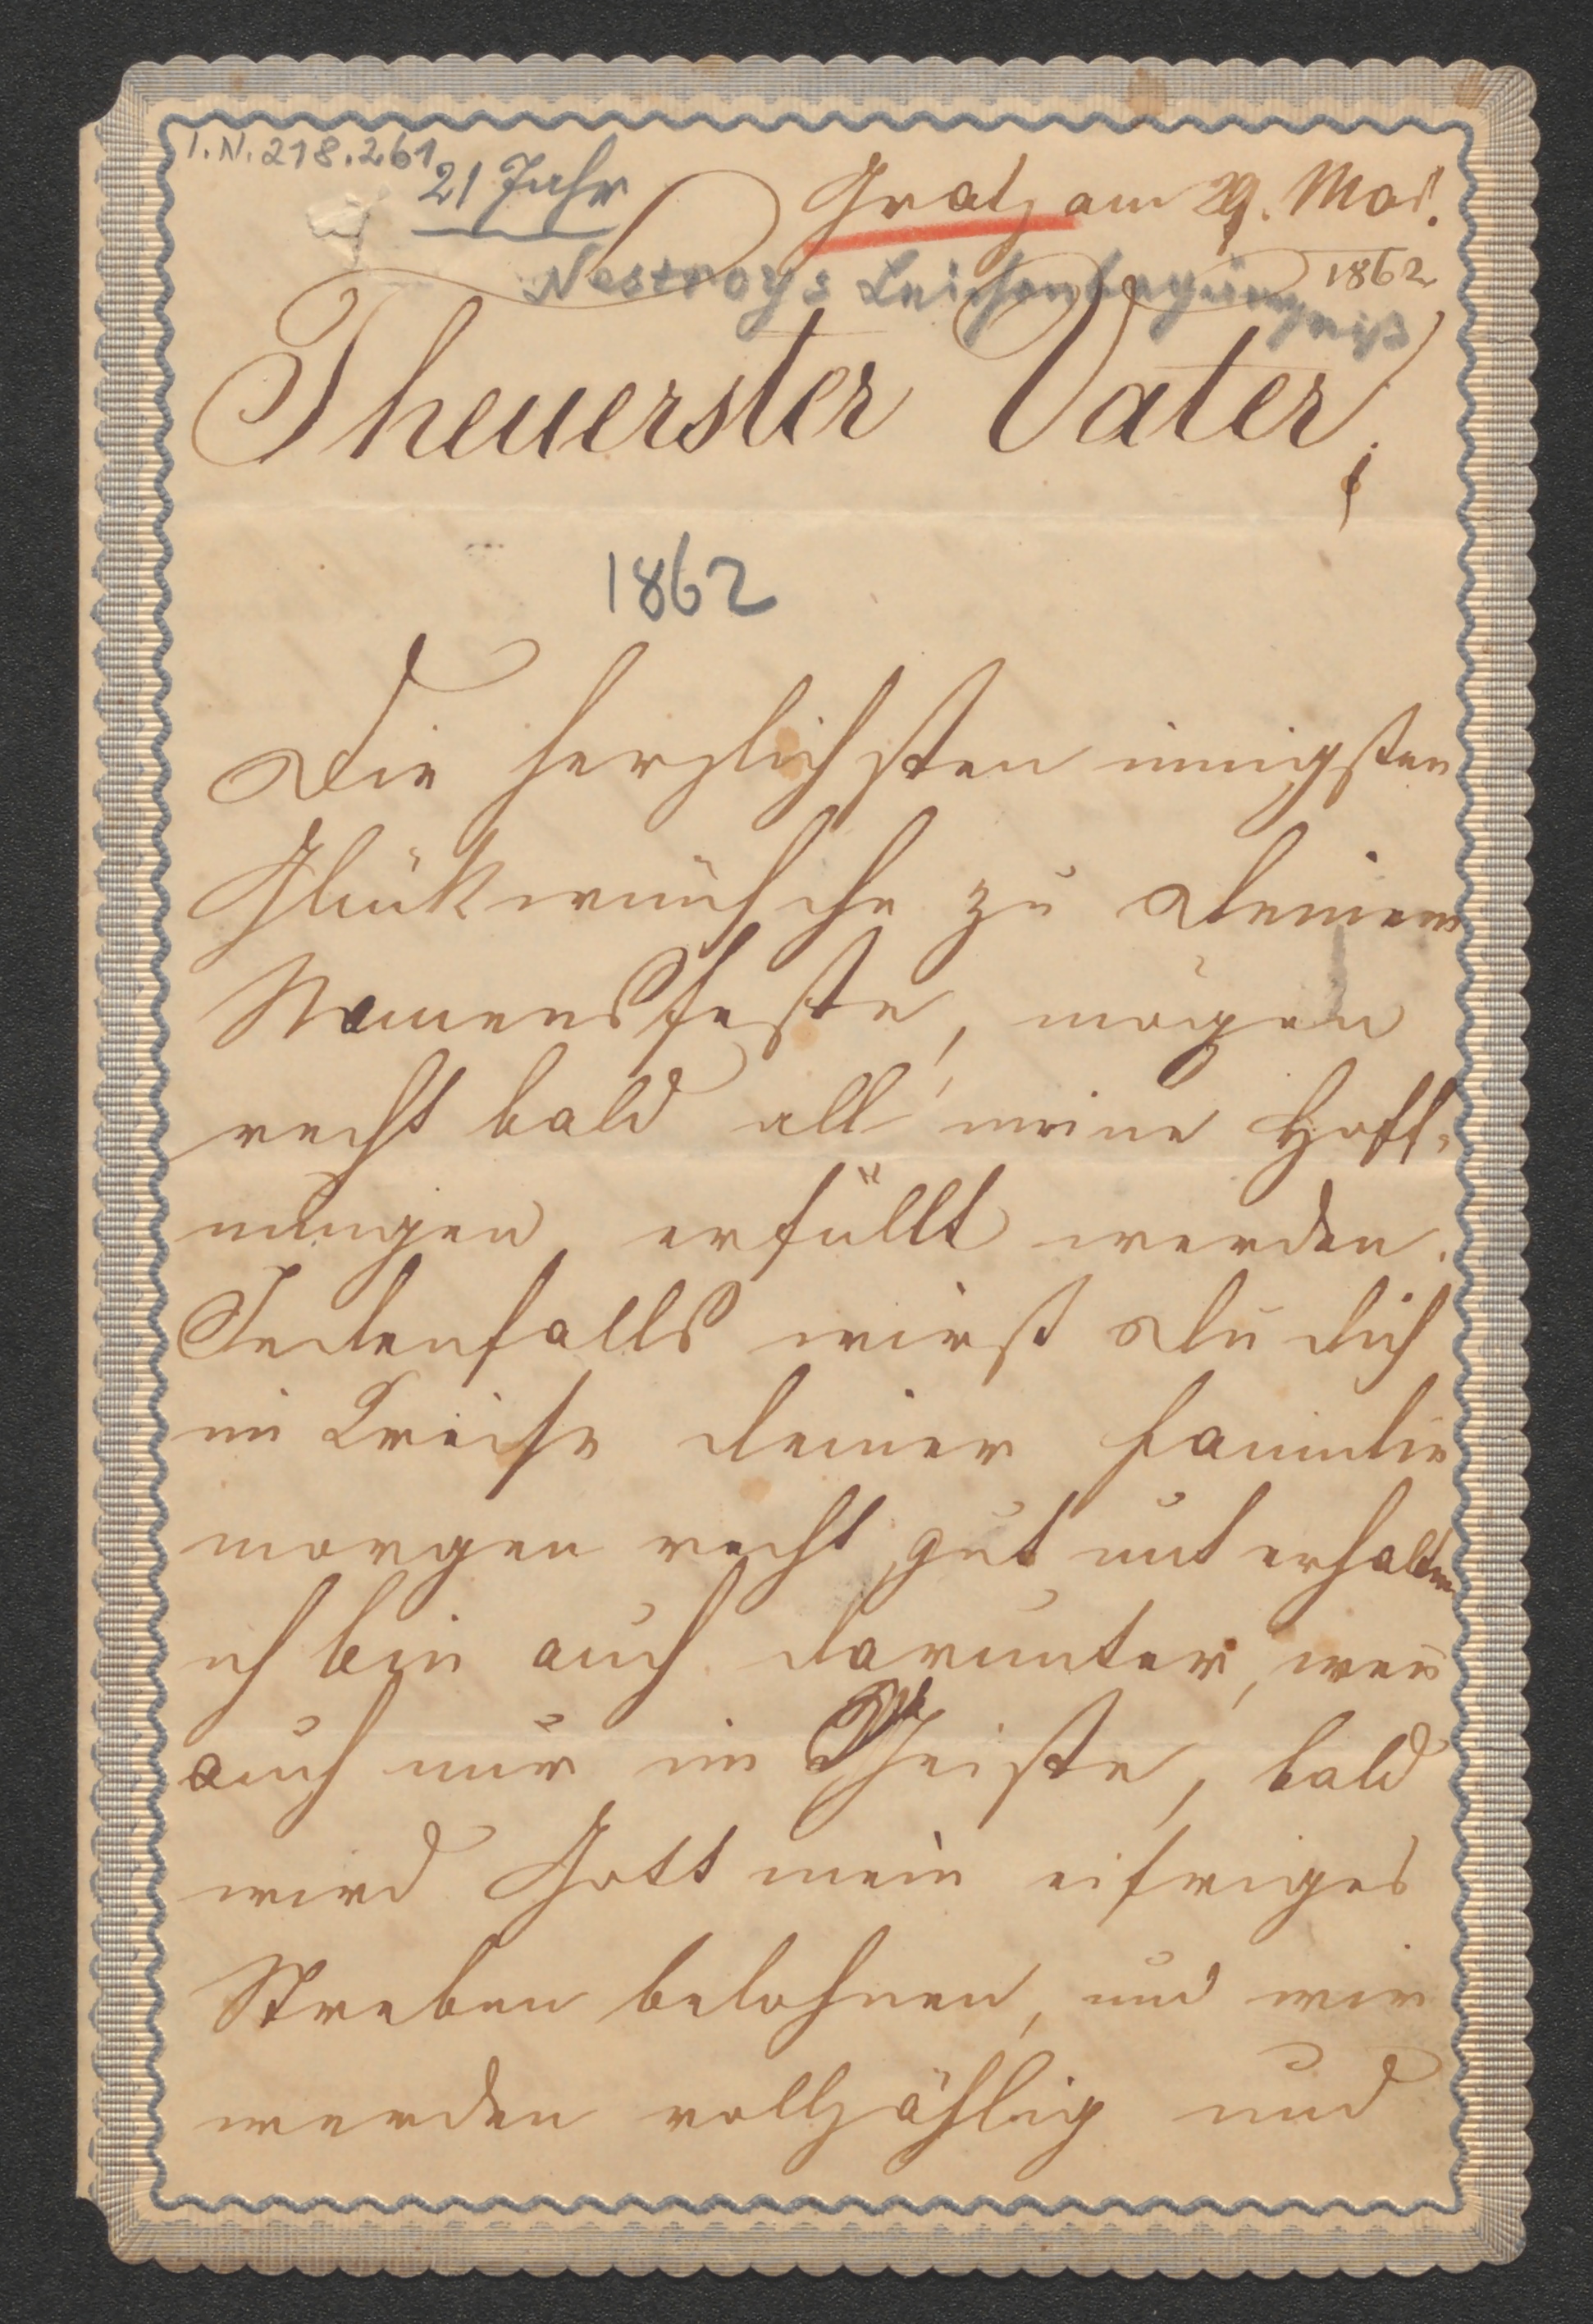 I.N. 218.261
21 Jahr
Gratz am 29. Mai.
1862
Nestroys Leichenbegängniß
Theuerster Vater!
1862
Die herzlichsten innigsten
Glückwünsche zu Deinem
Namensfeste, mögen
recht bald all' meine Hoff-
nungen erfüllt werden.
Jedenfalls wirst Du dich
im Kreise deiner Familie
morgen recht gut unterhalten
ich bin auch darunter, wen
auch nur im Geiste, bald
wird Gott mein eifriges
Streben belohnen, und wir
werden vollzählig und